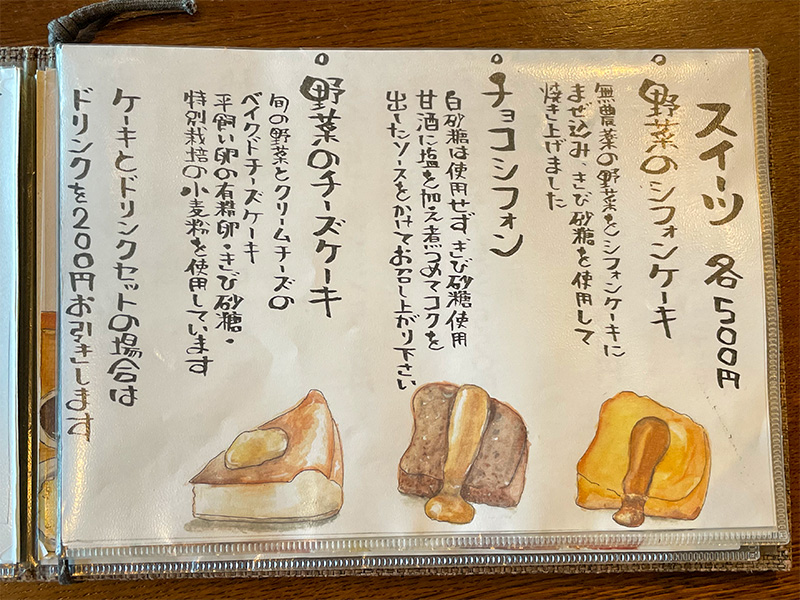 スイーツ 各500円
野菜のシフォンケーキ
無農薬の野菜をシフォンケーキに
まぜ込み、きび砂糖を使用して
焼き上げました
チョコシフォン
白砂糖は使用せず、きび砂糖使用
甘酒に塩を加え煮つめてコクを
出したソースをかけてお召し上がり下さい
野菜のチーズケーキ
旬の野菜とクリームチーズの
ベイクドチーズケーキ
平飼い卵の有精卵・きび砂糖・
特別栽培の小麦粉を使用しています
ケーキとドリンクセットの場合は
ドリンクを200円お引きします